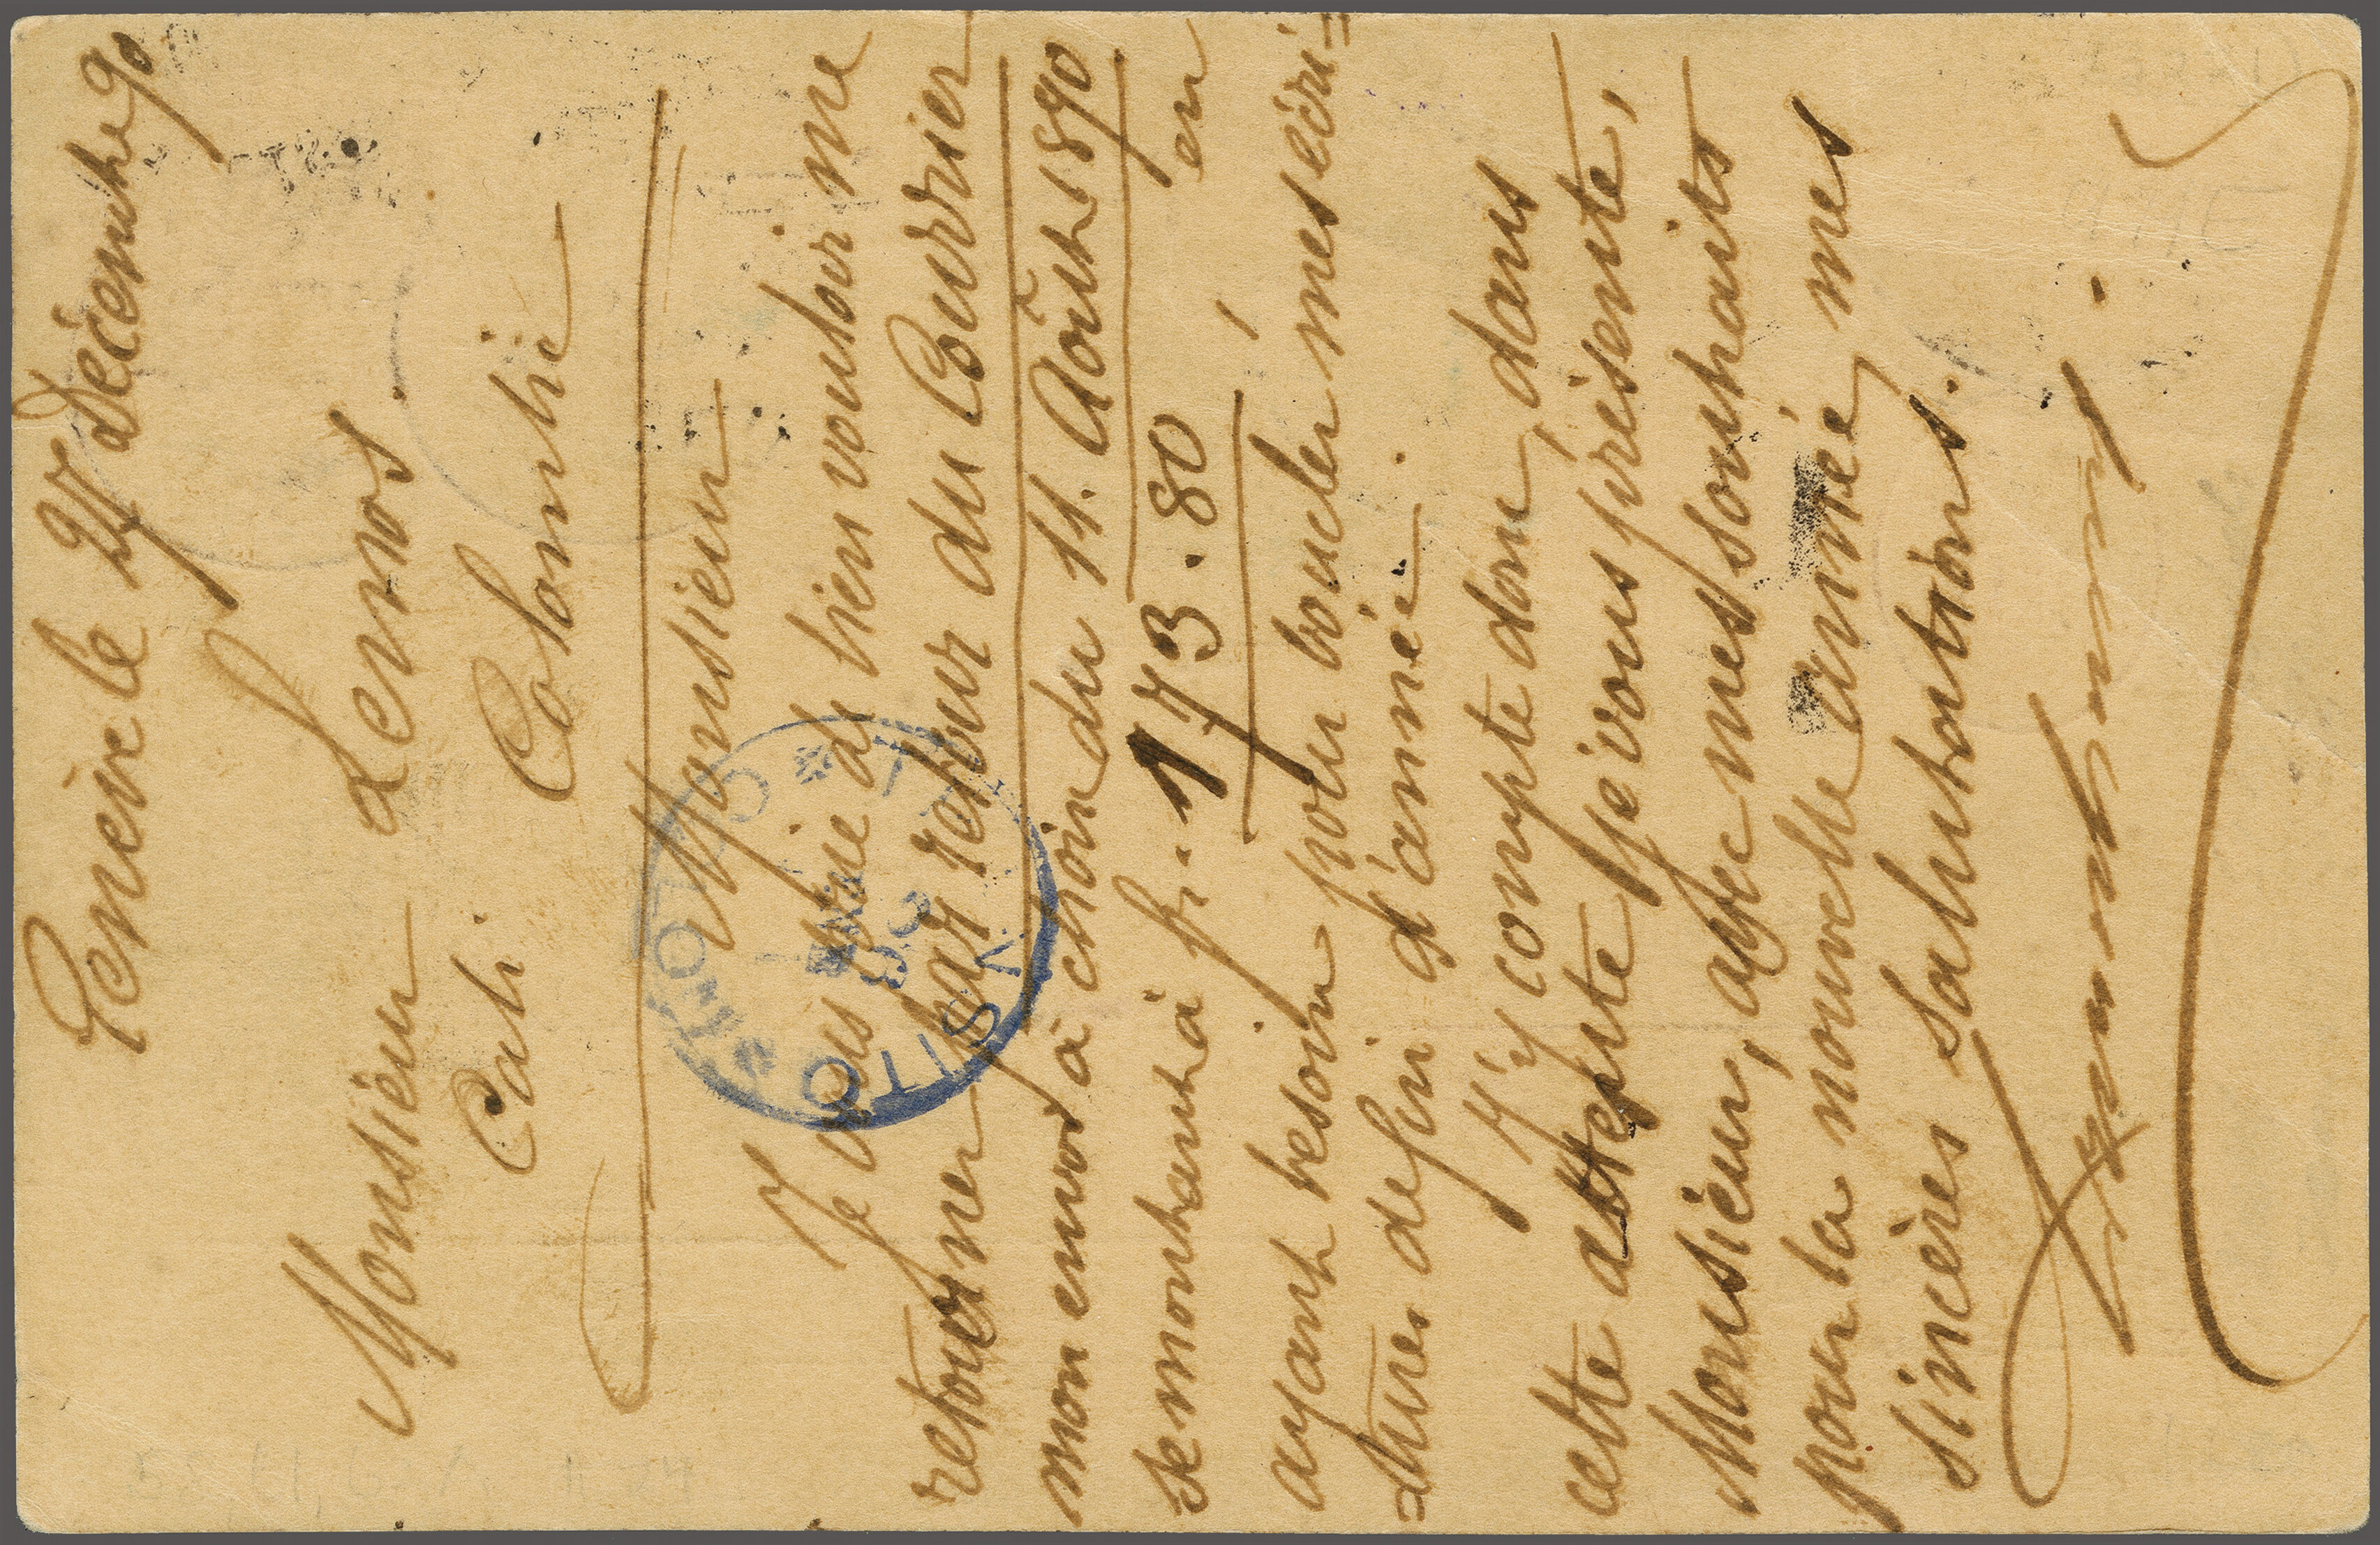 Genève le 27 Décembre 90
Monsieur Lemos
Cali Colombie
Monsieur
Je vous prie de bien vouloir me
retourner par retour du Courrier
mon envoi à choix du 11. Août 1890
se montant à fr. 173.80 en
ayant besoin pour boucler mes écri=
tures de fin d'année.
J'y compte donc, dans
cette attente je vous présente,
Monsieur, avec mes souhaits
pour la nouvelle année mes
sincères salutations.